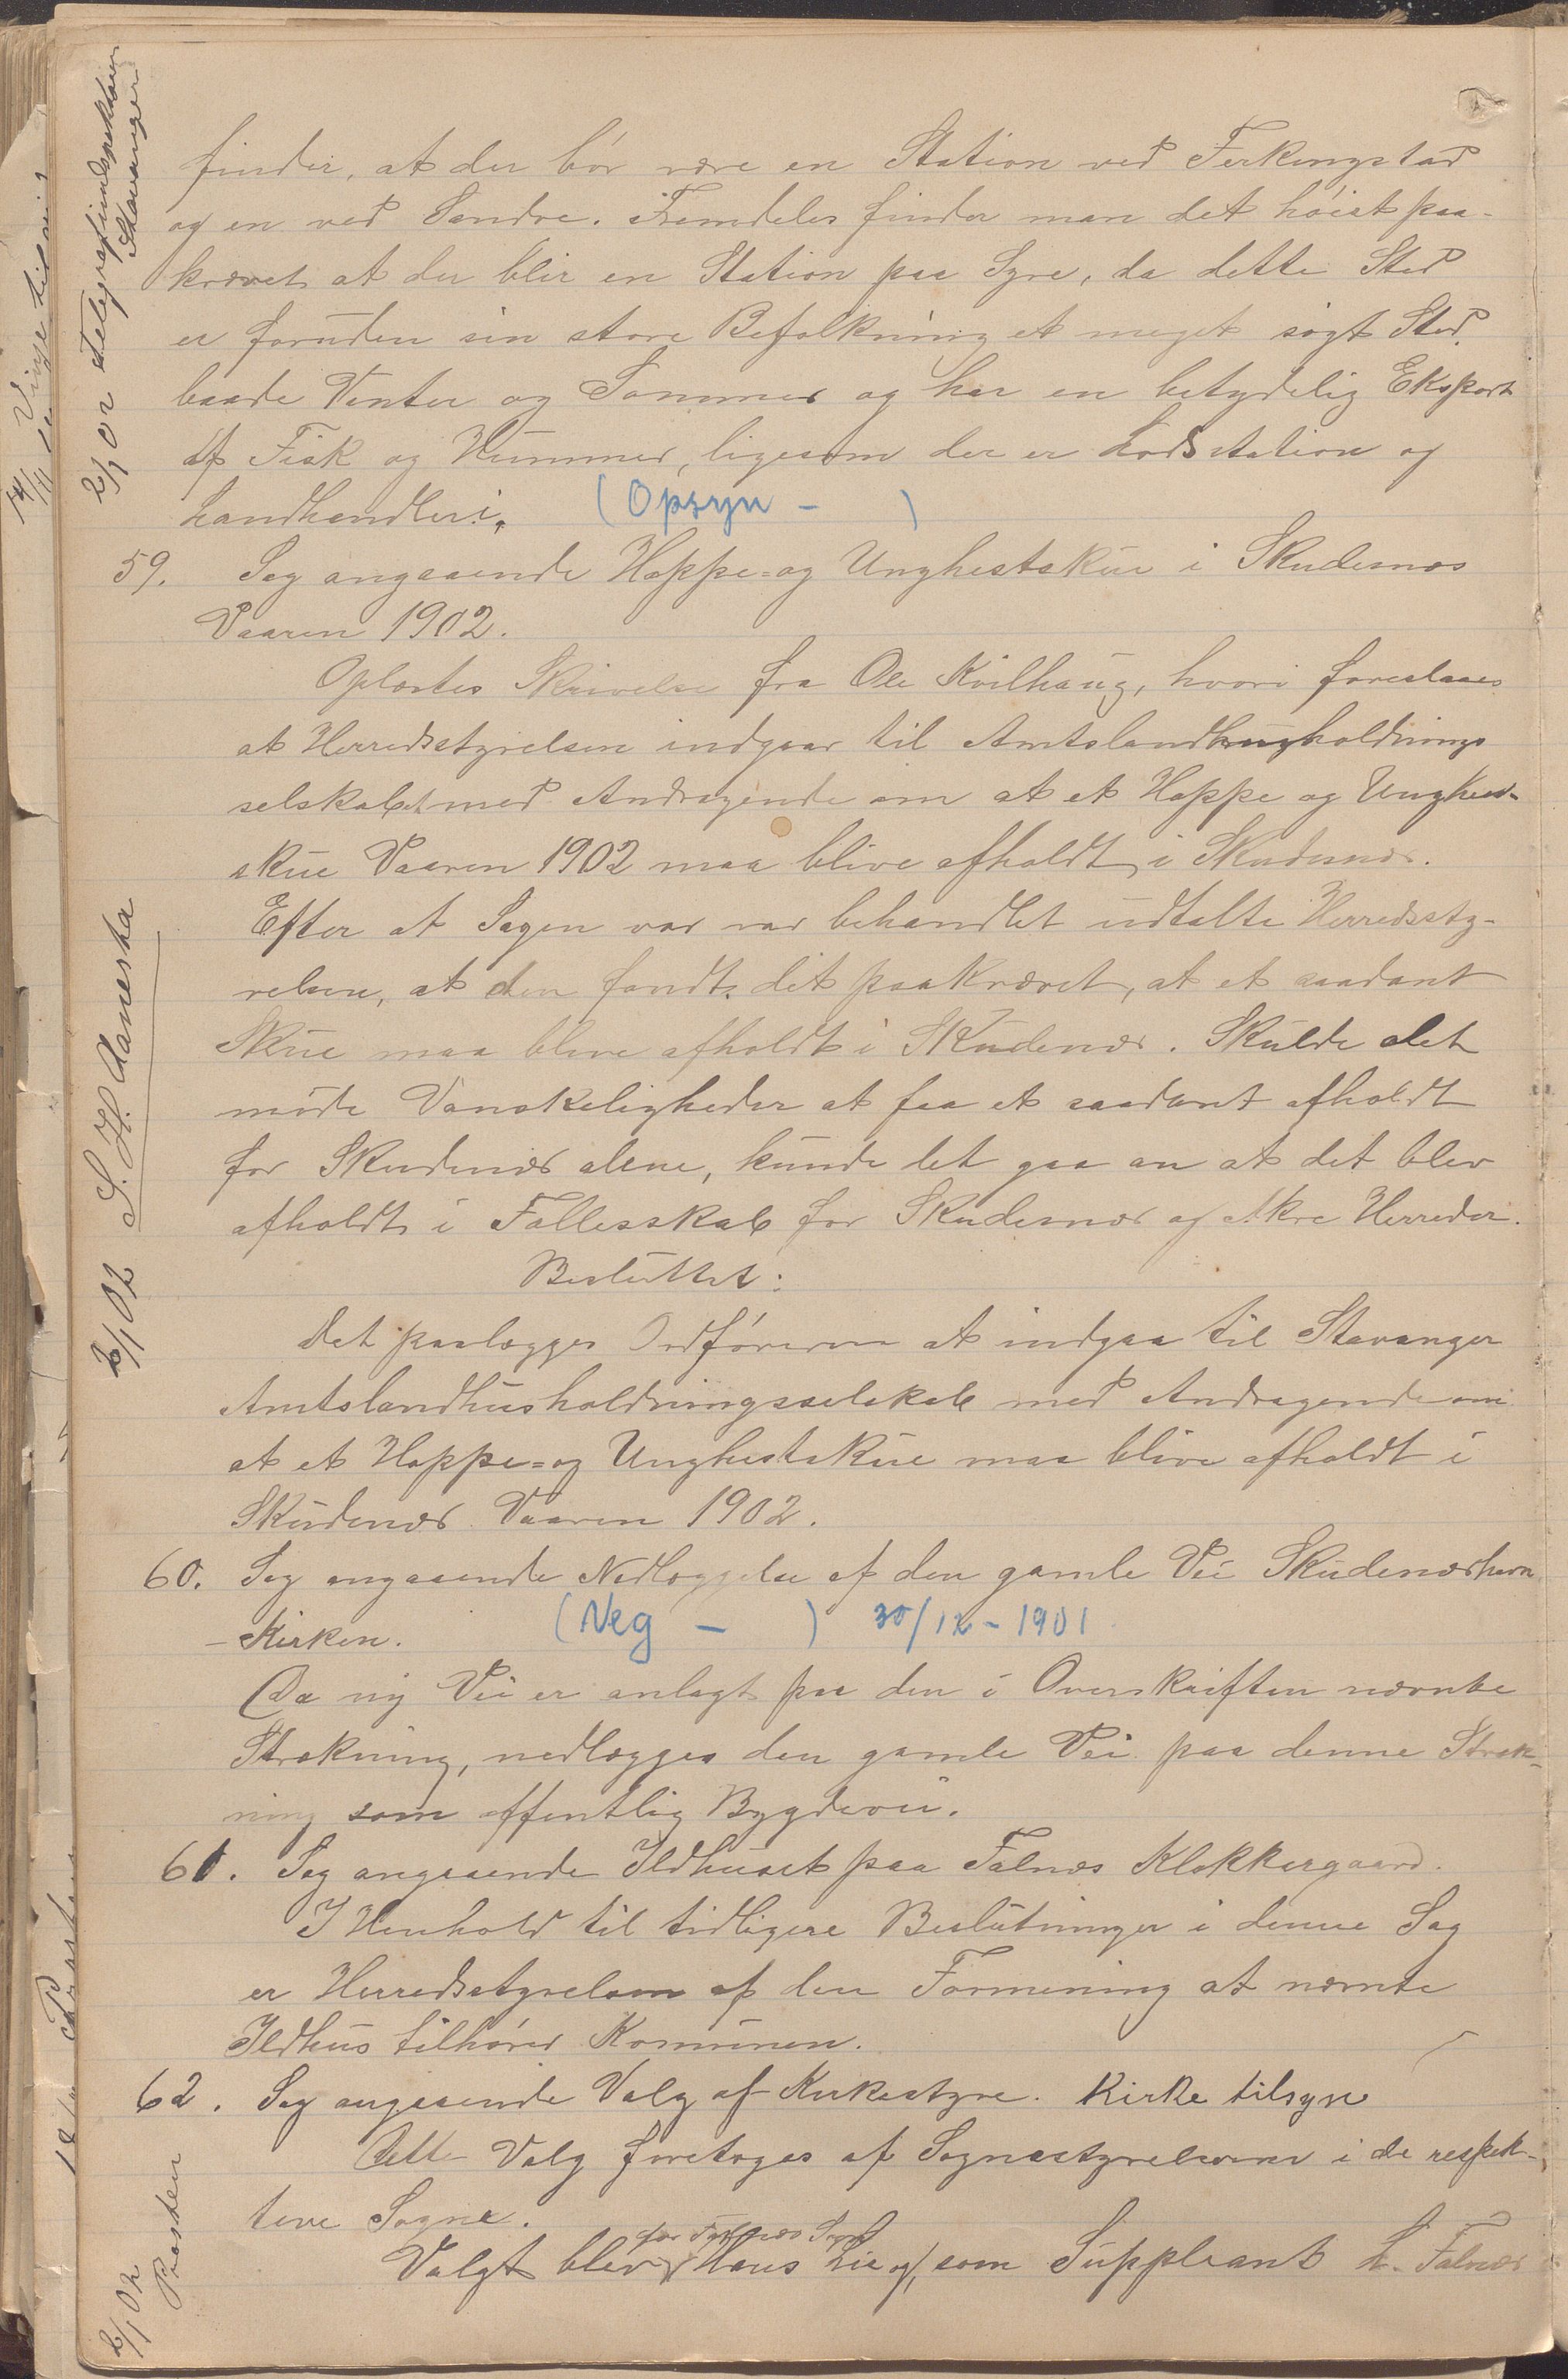 finder, at der bör være en Station ved Ferkingstad
og en ved Sandve. Fremdeles finder man det höist paa-
krævet at der blir en Station paa Syre, da dette Sted
er foruden sin store Befolkning et meget sögt Sted,
baade Vinter og Sommer og har en betydelig Eksport
af Fisk og Hummer, ligesom der er Lodsstation og
Landhandleri. (Opsyn - )
59. Sag angaaende Hoppe- og Unghestskue i Skudesnes
Vaaren 1902.
Oplæstes Skrivelse fra Ole Kvilhaug, hvori foreslaaes
at Herredsstyrelsen indgaar til Amtslandhusholdnings
selskabet med Andragende om at et Hoppe og Unghest-
skue Vaaren 1902 maa blive afholdt i Skudesnes.
Efter at Sagen var var behandlet udtalte Herredssty-
relsen, at den fandt det paakrævet, at et saadant
Skue maa blive afholdt i Skudenæs. Skulde det
möde Vanskeligheder at faa et saadant afholdt
for Skudenæs alene, kunde det gaa an at det blev
afholdt i Fællesskab for Skudesnæs og Akre Herreder.
Besluttet:
Det paalægges Ordföreren at indgaa til Stavanger
Amtslandhusholdningsselskab med Andragende om
at et Hoppe- og Unghestskue maa blive afholdt i
Skudenæs Vaaren 1902.
60. Sag angaaende Nedlæggelse af den gamle Vei Skudenæshavn
- Kirken. (Veg - ) 30/12 - 1901
Da ny Vei er anlagt paa den i Overskriften nævnte
Strækning, nedlægges den gamle Vei paa denne Stræk-
ning som offentlig Bygdevei.
61. Sag angaaende Ildhuset paa Falnæs Klokkergaard.
I Henhold til tidligere Beslutninger i denne Sag
er Herredsstyrelsen af den Formening at nævnte
Ildhus tilhörer Komunen.
62. Sag angaaende Valg af Kirkestyre. Kirke tilsyn
Dette Valg foretages af Sognestyrelserne i de respek-
tive Sogne.
for Falnæs Sogn
Valgt blev Hans Lie og som Suppleant L. Falnæs
2/1 02 Telegrafinspektøren
Stavanger
2/1 02 S. H. Aanestad
2/1 02 Presten